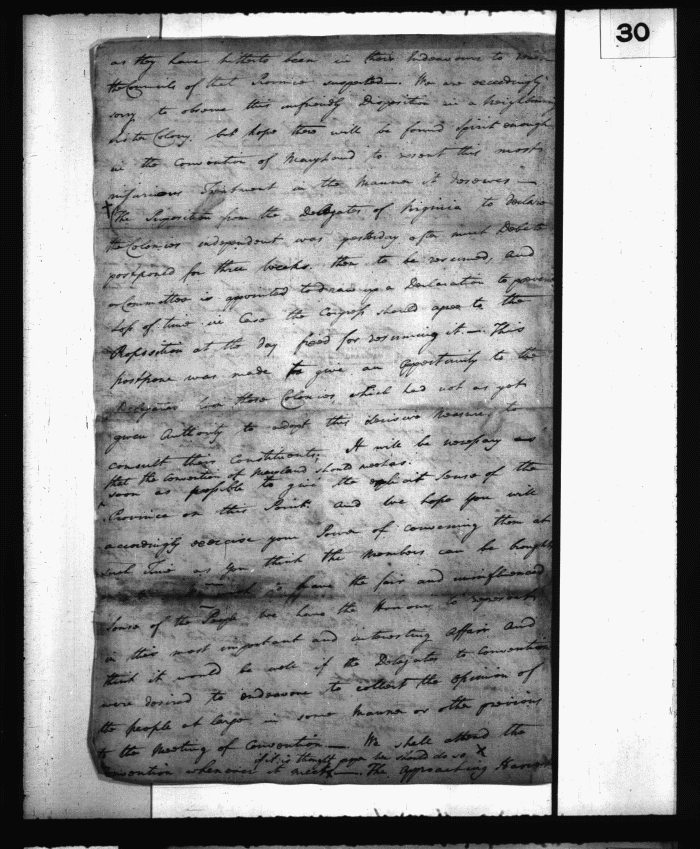 30
as they have hitherto been in their Endeavours to render
the Councils of that Province suspected. We are exceedingly
sorry to observe this unfriendly Disposition in a Neighbouring
Sister Colony, but hope there will be found Spirit enough
in the Convention of Maryland to resent this most
nefarious Treatment in the Manner it deserves —
The Proposition from the Delegates of Virginia to declare
the Colonies independent was yesterday after much Debate
postponed for three Weeks, then to be resumed, and
a Committee is appointed to draw up a Declaration to prevent
Loss of time in Case the Congress should agree to the
Proposition at the day fixed for resuming it — This
postpone was made to give an opportunity to the
Delegates from those Colonies, which had not as yet
given Authority to adopt this decisive Measure, to
consult their Constituents; It will be necessary
that the Convention of Maryland should meet as
soon as possible to give the explicit Sense of the
Province on this Point. And we hope you will
accordingly exercise your Power of convening them at
such Time as you think the Members can be brought
the fair and uninfluenced
Sense of the People we have the Honour to represent
in this most important and interesting Affair And
think it would be well if the Delegates to Convention
were desired to endeavour to collect the opinion of
the people at large in some Manner or other previous
to the Meeting of Convention — We shall attend the
if it is thought proper we should do so, X
Convention whenever it meets —. The approaching Harvest